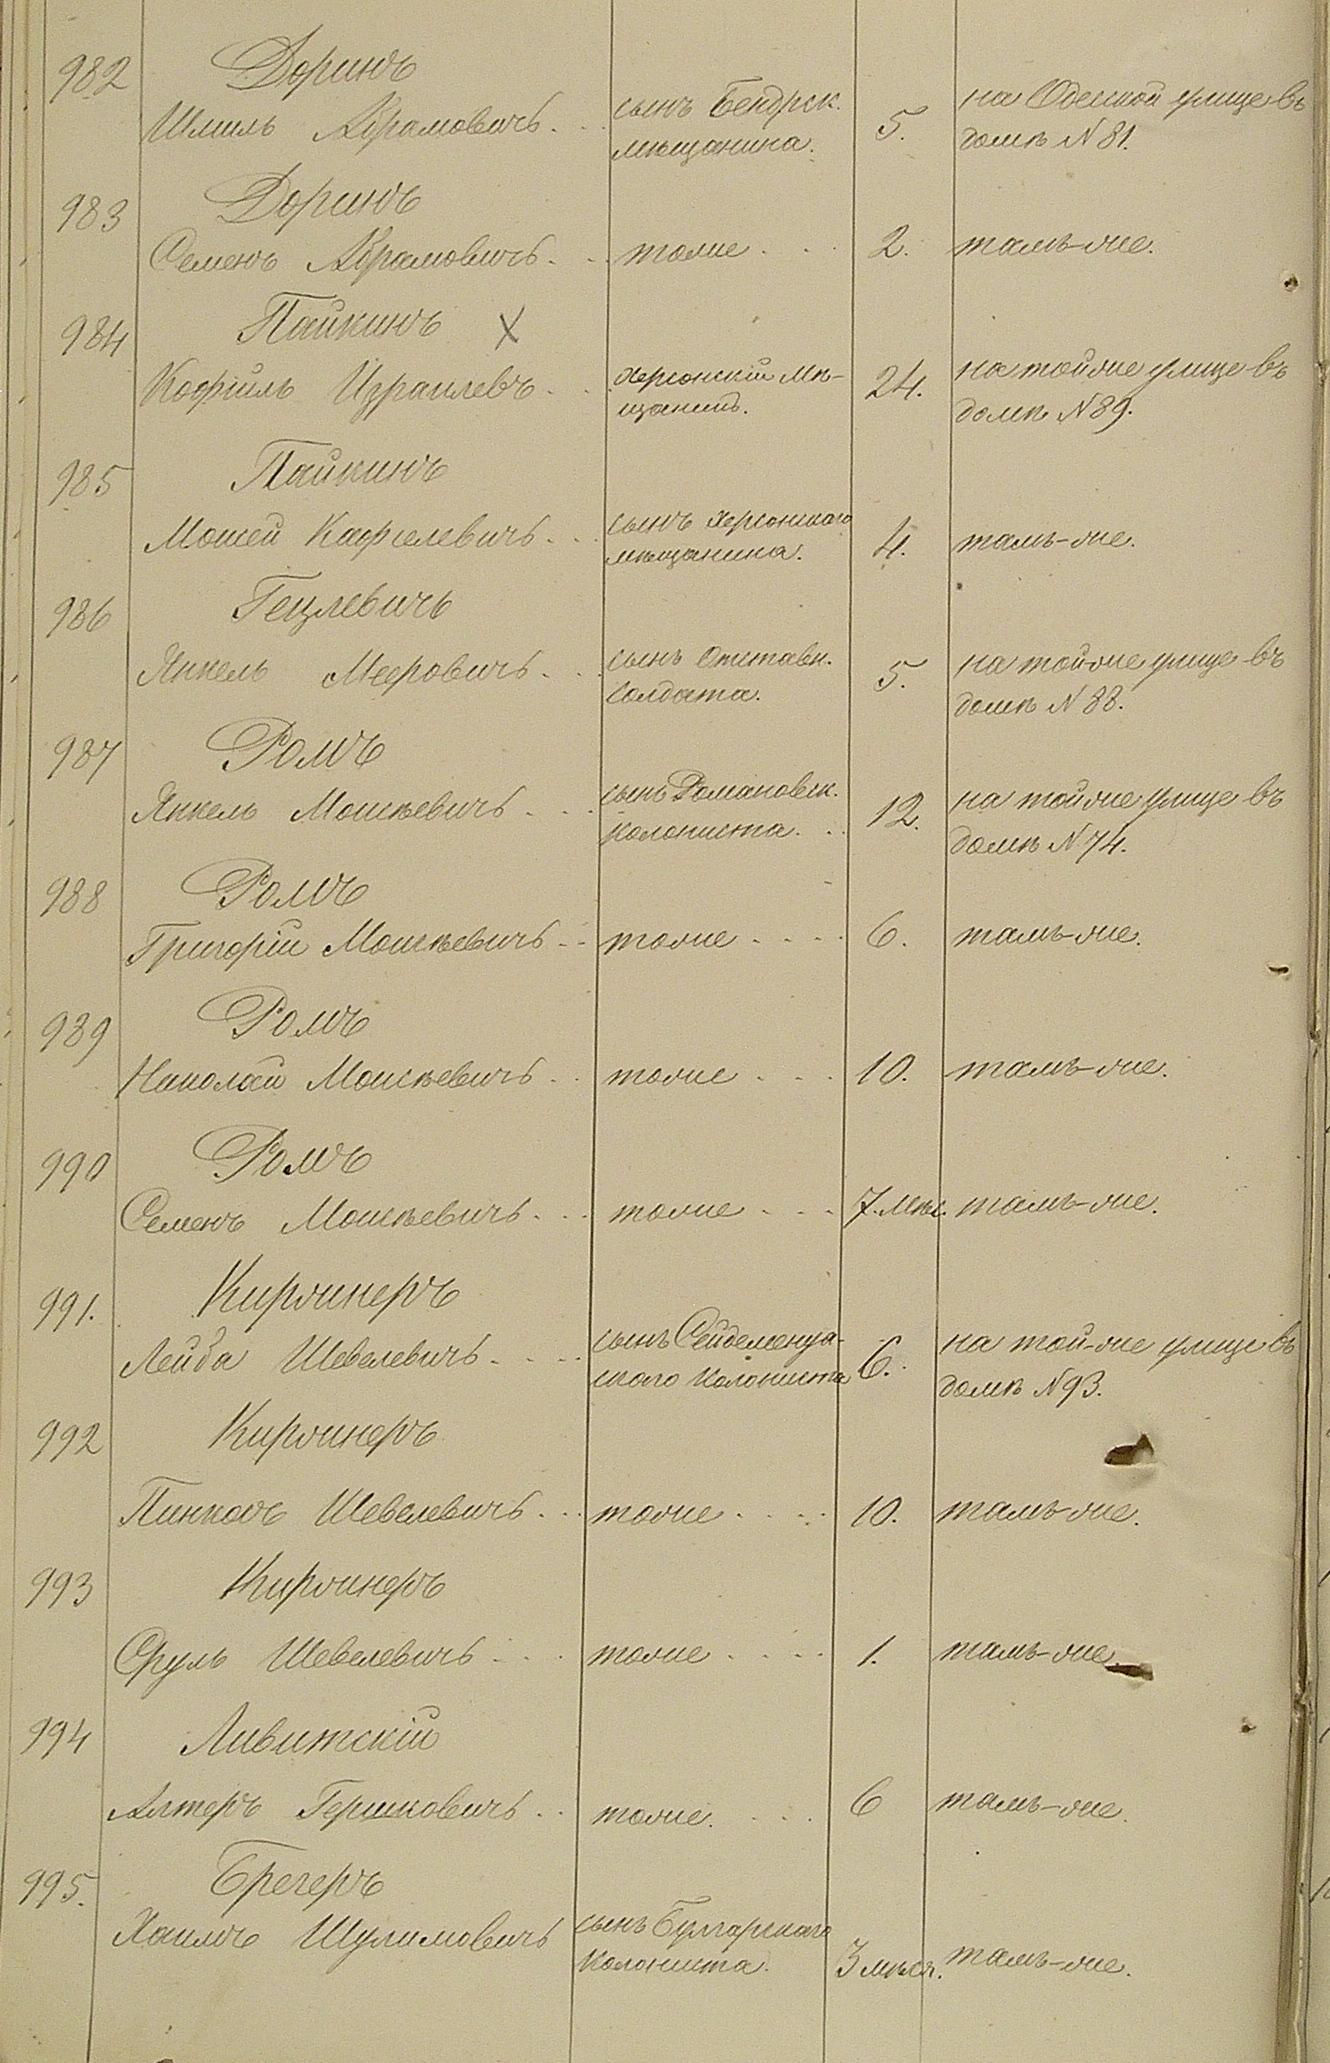 982 Доринъ
Шлиль Абрамовичъ. . . сынъ Бендрск. мѣщанина. 5. на Одесской улице въ домѣ N 81.
983 Доринъ
Семенъ Абрамовичъ. . . тоже . . . 2. тамъ-же.
984 Пайкинъ X
Кофшиль Израилевъ. . . Херсонскій мѣ-щанинъ. 24. на той же улице въ домѣ N 89.
985 Пайкинъ
Мошей Кафилевичъ. . . сынъ Херсонскаго мѣщанина. 4. тамъ-же.
986 Гецлевичъ
Янкель Мееровичъ. . . сынъ Отставн. солдата. 5. на той же улице въ домѣ N 88.
987 Ромъ
Янкель Моисѣевичъ . . . сынъ Романовск. колониста. . . 12. на той же улице въ домѣ N 74.
988 Ромъ
Григорій Моисѣевичъ . . тоже . . . . 6. тамъ-же.
989 Ромъ
Николай Моисѣевичъ . . тоже . . . 10. тамъ-же.
990 Ромъ
Семенъ Моисѣевичъ . . . тоже . . . 7. мѣс. тамъ-же.
991. Киржнеръ
Лейба Шевелевичъ. . . . сынъ Сейдеменуд-скаго колониста 6. на той-же улице въ домѣ N 93.
992 Киржнеръ
Пинхосъ Шевелевичъ. . . тоже . . . . 10. тамъ-же.
993 Киржнеръ
Сруль Шевелевичъ . . . тоже . . . . 1. тамъ-же.
994 Ливитскій
Алтеръ Гершковичъ . . тоже. . . . 6 тамъ-же.
995. Брегеръ
Хаимъ Шулимовичъ сынъ Булгарскаго колониста. 3 мѣся. тамъ-же.